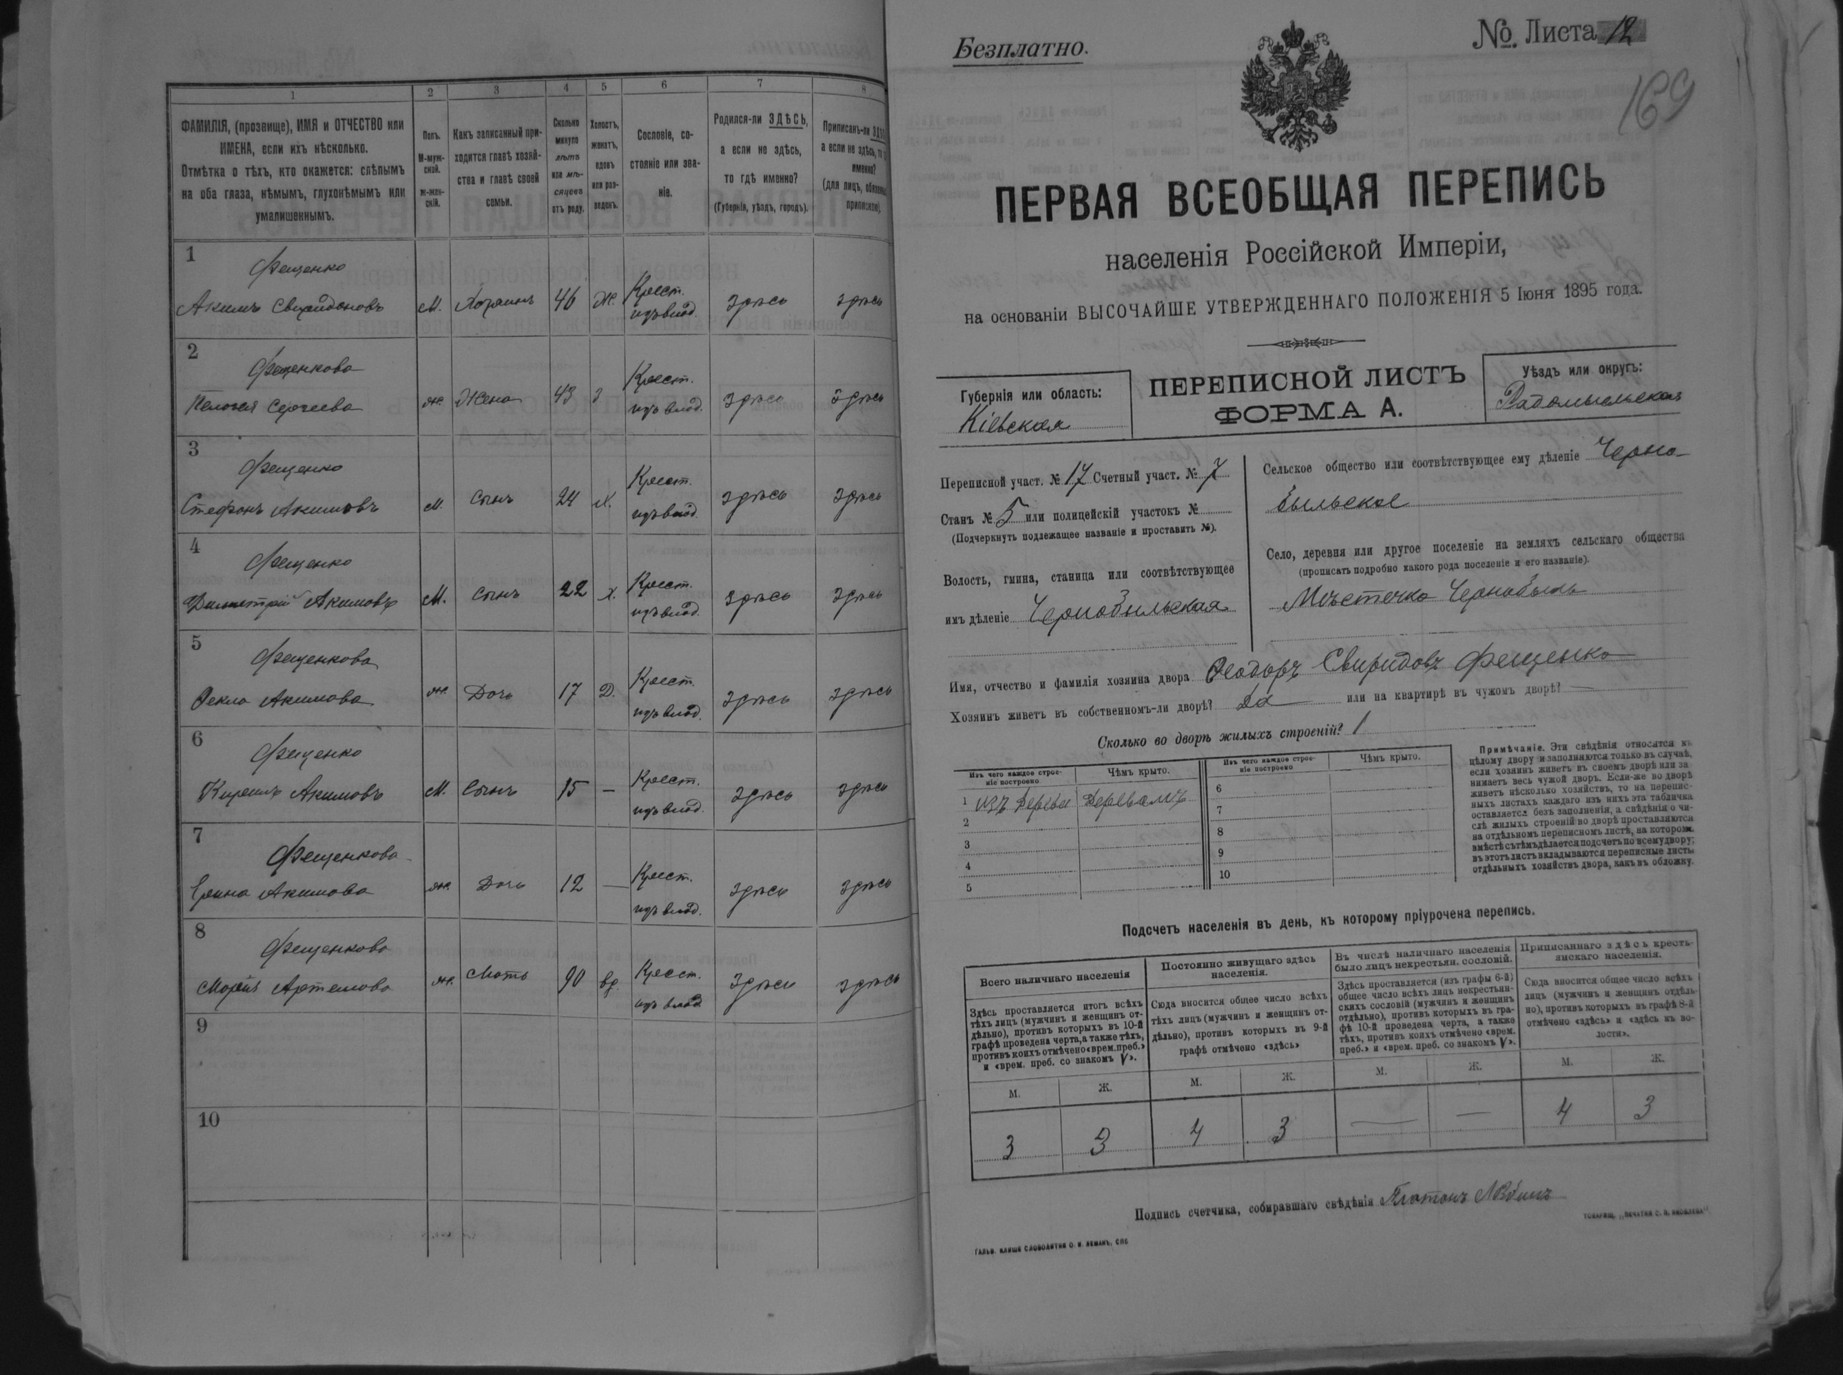 1 2 3 4 5 6 7 8
ФАМИЛІЯ, (прозвище), ИМЯ и ОТЧЕСТВО или
ИМЕНА, если ихъ нѣсколько.
Отмѣтка о тѣхъ, кто окажется: слѣпымъ
на оба глаза, нѣмымъ, глухонѣмымъ или
умалишеннымъ.
Полъ.
М-муж-
ской.
ж-жен-
скій.
Какъ записанный при-
ходится главѣ хозяй-
ства и главѣ своей
семьи.
Сколько
минуло
лѣтъ
или мѣ-
сяцевъ
отъ роду.
Холостъ,
женатъ,
вдовъ
или раз-
веденъ.
Сословіе, со-
стояніе или зва-
ніе.
Родился-ли ЗДѢСЬ,
а если не здѣсь,
то гдѣ именно?
(Губернія, уѣздъ, городъ).
Приписанъ-ли
а если не здѣсь,
именно?
(для лицъ,
1
Фещенко
Акимъ Свиридоновъ м. Хозяинъ 46 Ж. Крест. изъ влад. здѣсь здѣсь
2
Фещенкова
Пелагея Сергеева ж. Жена 43 З Крест. изъ влад. здѣсь здѣсь
3
Фещенко
Стефанъ Акимовъ м. Сынъ 24 х. Крест. изъ влад. здѣсь здѣсь
4
Фещенко
Димитрій Акимовъ м. Сынъ 22 х. Крест. изъ влад. здѣсь здѣсь
5
Фещенкова
Фекла Акимова ж. Дочь 17 Д. Крест. изъ влад. здѣсь здѣсь
6
Фещенко
Кирилъ Акимовъ м. Сынъ 15 — Крест. изъ влад. здѣсь здѣсь
7
Фещенкова
Ерина Акимова ж. Дочь 12 — Крест. изъ влад. здѣсь здѣсь
8
Фещенкова
Марія Артемова ж. Мать 90 вд. Крест. изъ влад. здѣсь здѣсь
9
10
Безплатно.
№. Листа 12
169
ПЕРВАЯ ВСЕОБЩАЯ ПЕРЕПИСЬ
населенія Россійской Имперіи,
на основаніи ВЫСОЧАЙШЕ УТВЕРЖДЕННАГО ПОЛОЖЕНІЯ 5 Іюня 1895 года.
Губернія или область:
Кіевская
ПЕРЕПИСНОЙ ЛИСТЪ
ФОРМА А.
Уѣздъ или округъ:
Радомысльская
Переписной участ. № 17 Счетный участ. № 7
Станъ № 5 или полицейскій участокъ №
(Подчеркнуть подлежащее названіе и проставить №).
Волость, гмина, станица или соотвѣтствующее
имъ дѣленіе Чернобыльская
Сельское общество или соотвѣтствующее ему дѣленіе Черно-
быльское
Село, деревня или другое поселеніе на земляхъ сельскаго общества
(прописать подробно какого рода поселеніе и его названіе).
Мѣстечко Чернобыль
Имя, отчество и фамилія хозяина двора Феодоръ Свиридовъ Фещенко
Хозяинъ живетъ въ собственномъ-ли дворѣ? Да или на квартирѣ въ чужомъ дворѣ? —
Сколько во дворѣ жилыхъ строеній? 1
Изъ чего каждое строе-
ніе построено
Чѣмъ крыто.
Изъ чего каждое строе-
ніе построено
Чѣмъ крыто.
1 изъ дерева Деревамъ 6
2 7
3 8
4 9
5 10
Примѣчаніе. Эти свѣдѣнія относятся къ
цѣлому двору и заполняются только въ случаѣ,
если хозяинъ живетъ въ своемъ дворѣ или за-
нимаетъ весь чужой дворъ. Если-же во дворѣ
живетъ нѣсколько хозяйствъ, то на перепис-
ныхъ листахъ каждаго изъ нихъ эта табличка
оставляется безъ заполненія, а свѣдѣнія о чи-
слѣ жилыхъ строеній во дворѣ проставляются
на отдѣльномъ переписномъ листѣ, на которомъ
вмѣстѣ съ тѣмъ дѣлается подсчетъ по всему двору;
въ этотъ листъ вкладываются переписные листы
отдѣльныхъ хозяйствъ двора, какъ въ обложку.
Подсчетъ населенія въ день, къ которому пріурочена перепись.
Всего наличнаго населенія
Здѣсь проставляется итогъ всѣхъ
тѣхъ лицъ (мужчинъ и женщинъ от-
дѣльно), противъ которыхъ въ 10-й
графѣ проведена черта, а также тѣхъ,
противъ коихъ отмѣчено «врем. преб.»
и «врем. преб. со знакомъ V».
Постоянно живущаго здѣсь
населенія.
Сюда вносится общее число всѣхъ
тѣхъ лицъ (мужчинъ и женщинъ от-
дѣльно), противъ которыхъ въ 9-й
графѣ отмѣчено «здѣсь»
Въ числѣ наличнаго населенія
было лицъ некрестьян. сословій.
Здѣсь проставляется (изъ графы 6-й)
общее число всѣхъ лицъ некрестьян-
скихъ сословій (мужчинъ и женщинъ
отдѣльно), противъ которыхъ въ гра-
фѣ 10-й проведена черта, а также
тѣхъ, противъ коихъ отмѣчено «врем.
преб.» и «врем. преб. со знакомъ V».
Приписаннаго здѣсь кресть-
янскаго населенія.
Сюда вносится общее число всѣхъ
лицъ (мужчинъ и женщинъ отдѣль-
но), противъ которыхъ въ графѣ 8-й
отмѣчено «здѣсь» и «здѣсь въ во-
лости».
М. Ж. М. Ж. М. Ж. М. Ж.
3 3 4 3 — — 4 3
Подпись счетчика, собиравшаго свѣдѣнія Платонъ
ГАЛЬВ. КЛИШЕ СЛОВОЛИТНИ О. И. ЛЕМАНЪ, СПБ
ТОВАРИЩ. „ПЕЧАТНЯ С. П. ЯКОВЛЕВА“.